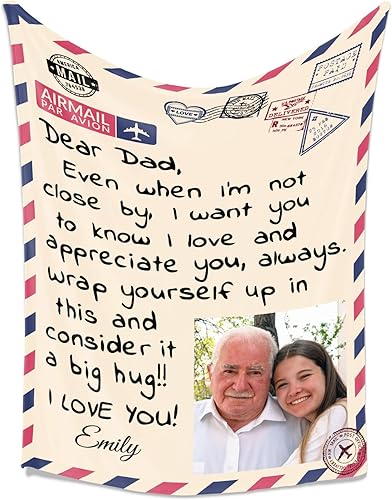 AMERICA
MAIL
AIRMAIL
PAR AVION
LOVE
DELIVERED
NEW YORK
POSTAGE
PAID
Dear Dad,
Even when i'm not
close by, I want you
to know I love and
appreciate you, always.
wrap yourself up in
this and
consider it
a big hug!!
I LOVE YOU!
Emily